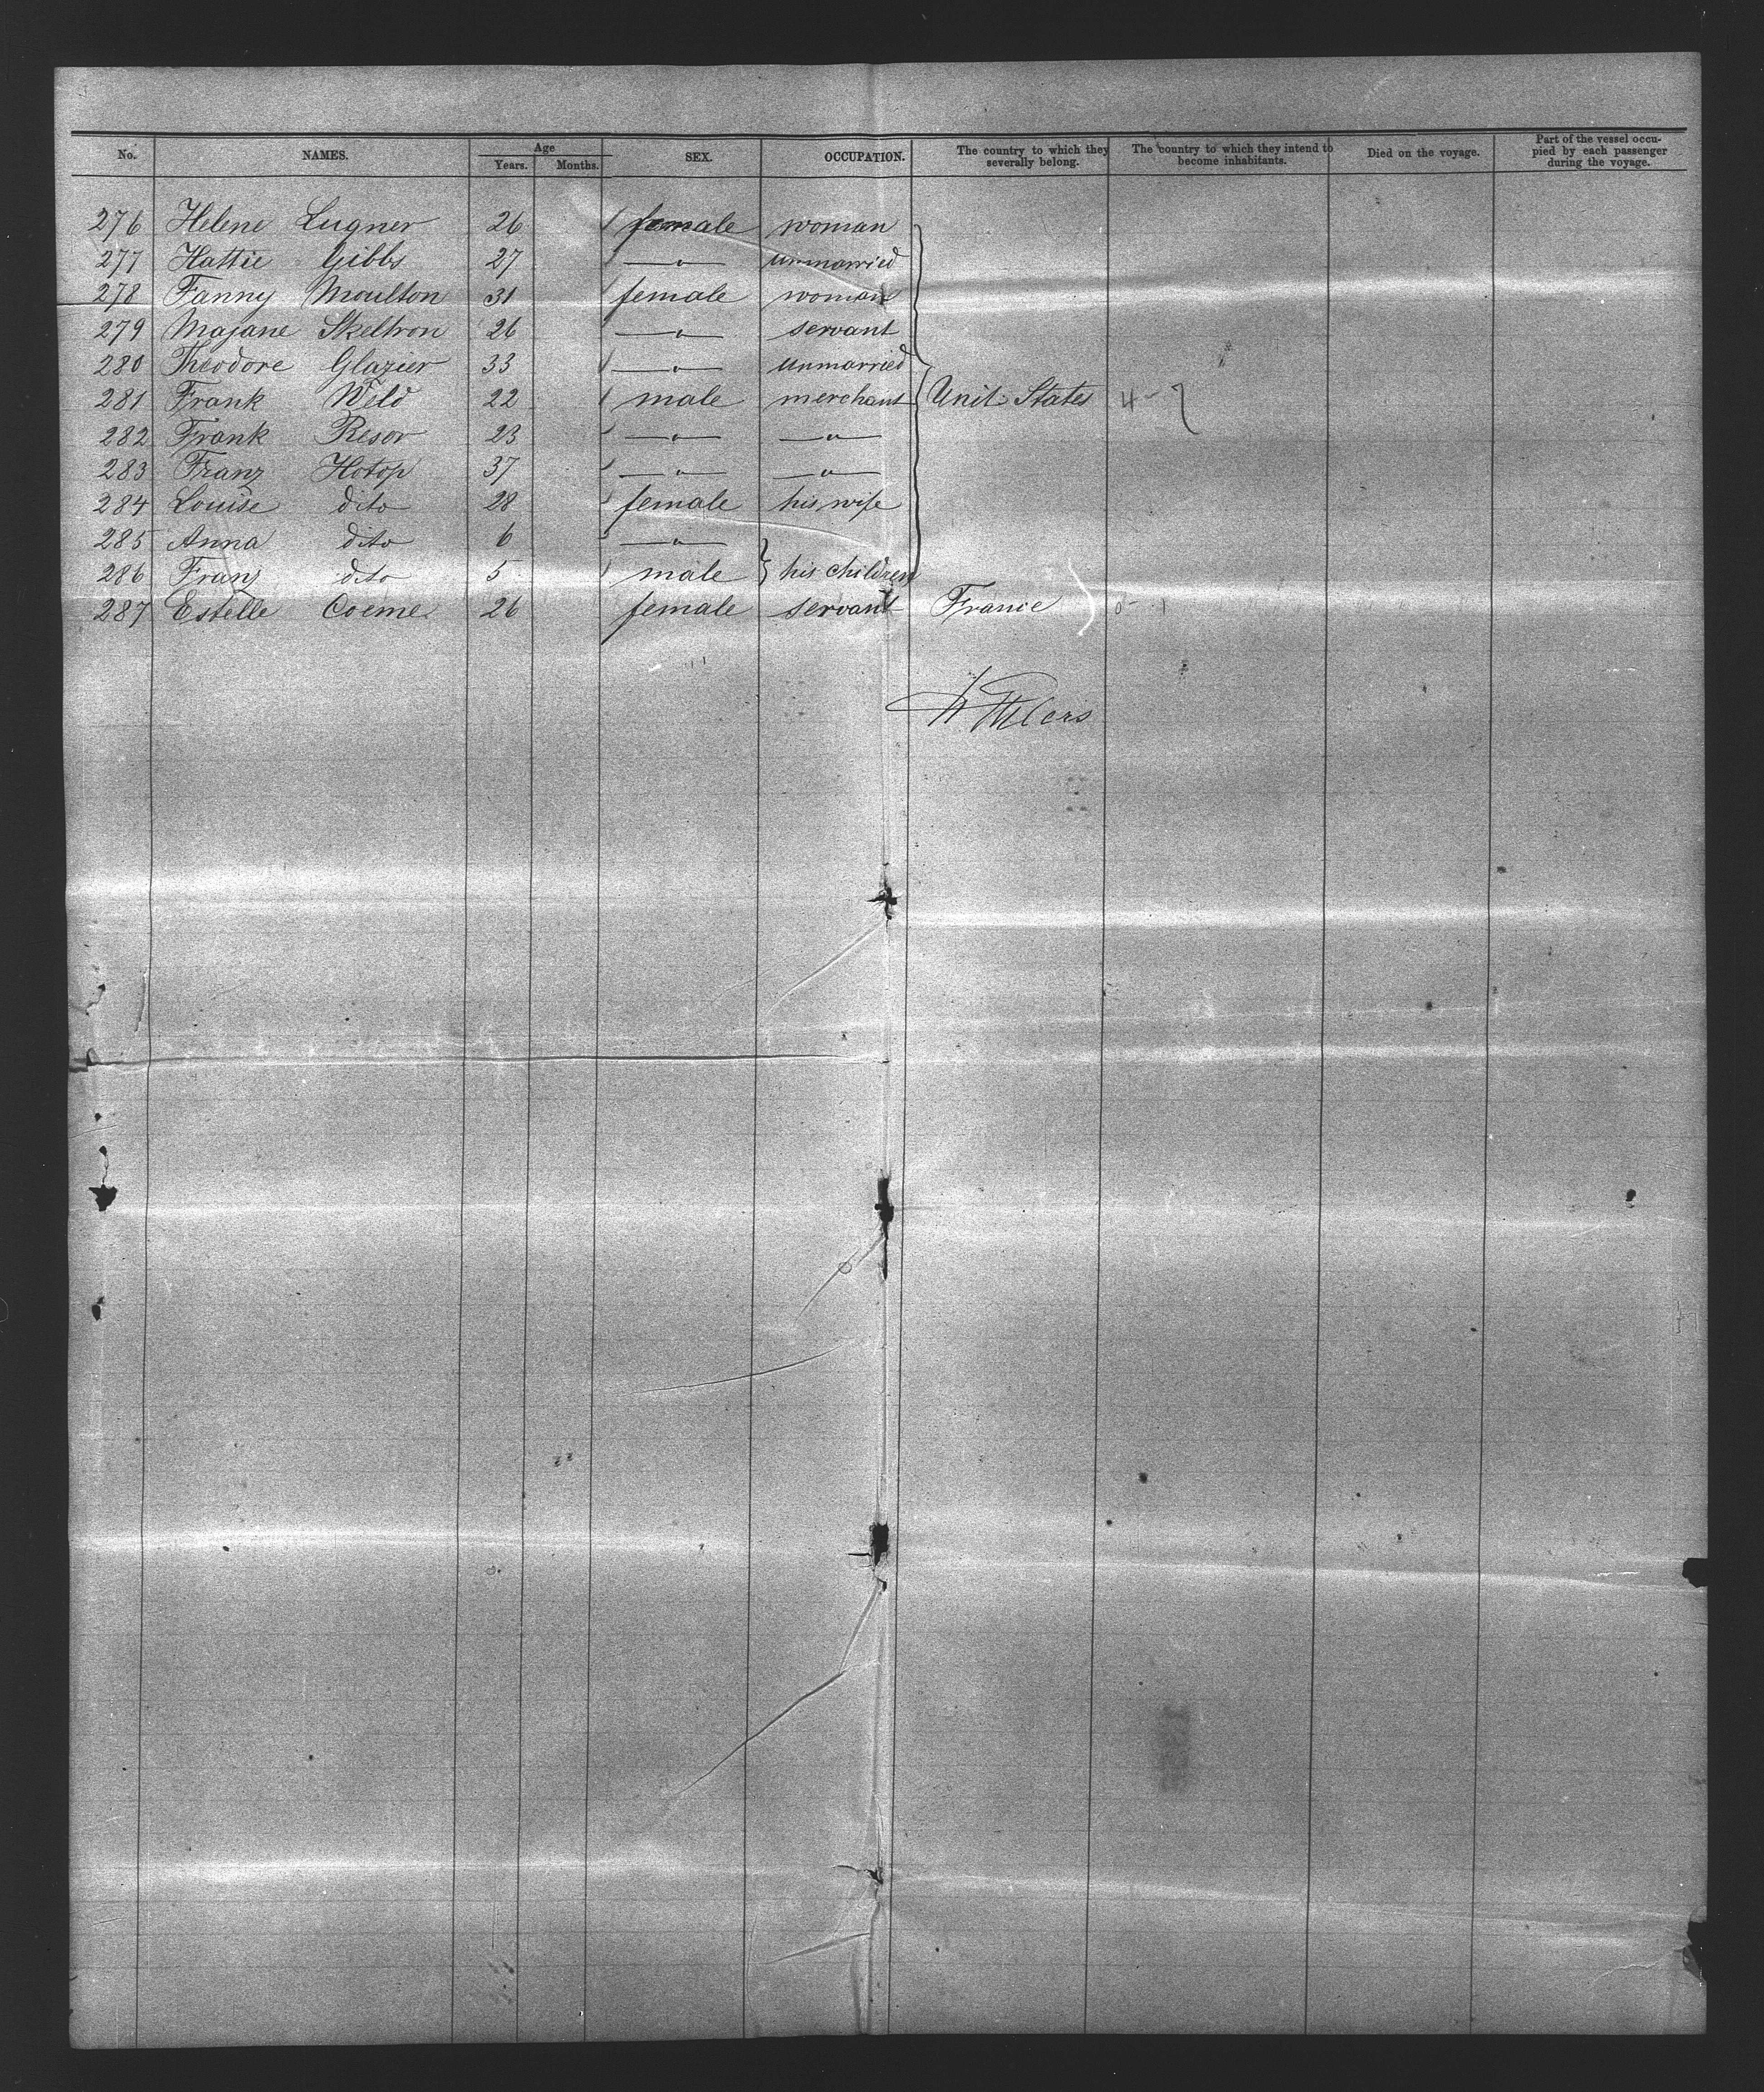 No. NAMES. Age Years. Months. SEX. OCCUPATION. The country to which they severally belong. The country to which they intend to become inhabitants. Died on the voyage. Part of the vessel occupied by each passenger during the voyage.
276 Helene Lugner 26 female woman
277 Hattie Gibbs 27 —"— unmarried
278 Fanny Moulton 31 female woman
279 Majane Skeltron 26 —"— servant
280 Theodore Glazier 33 —"— unmarried
281 Frank Weld 22 male merchant Unit States 4-7
282 Frank Resor 23 —"— —"—
283 Franz Hotop 37 —"— —"—
284 Louise dito 28 female his wife
285 Anna dito 6 —"—
286 Franz dito 5 male his children
287 Estelle Coeme. 26 female servant France